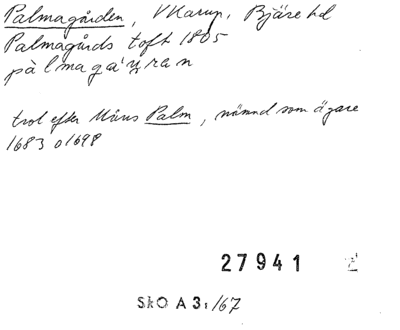 Palmagården, V Karup, Bjäre hd
Palmagårds toft 1805
pàlmagá'ɽran
trol efter Måns Palm, nämnd som ägare
1683 o 1698
27941
SkO A3:/67